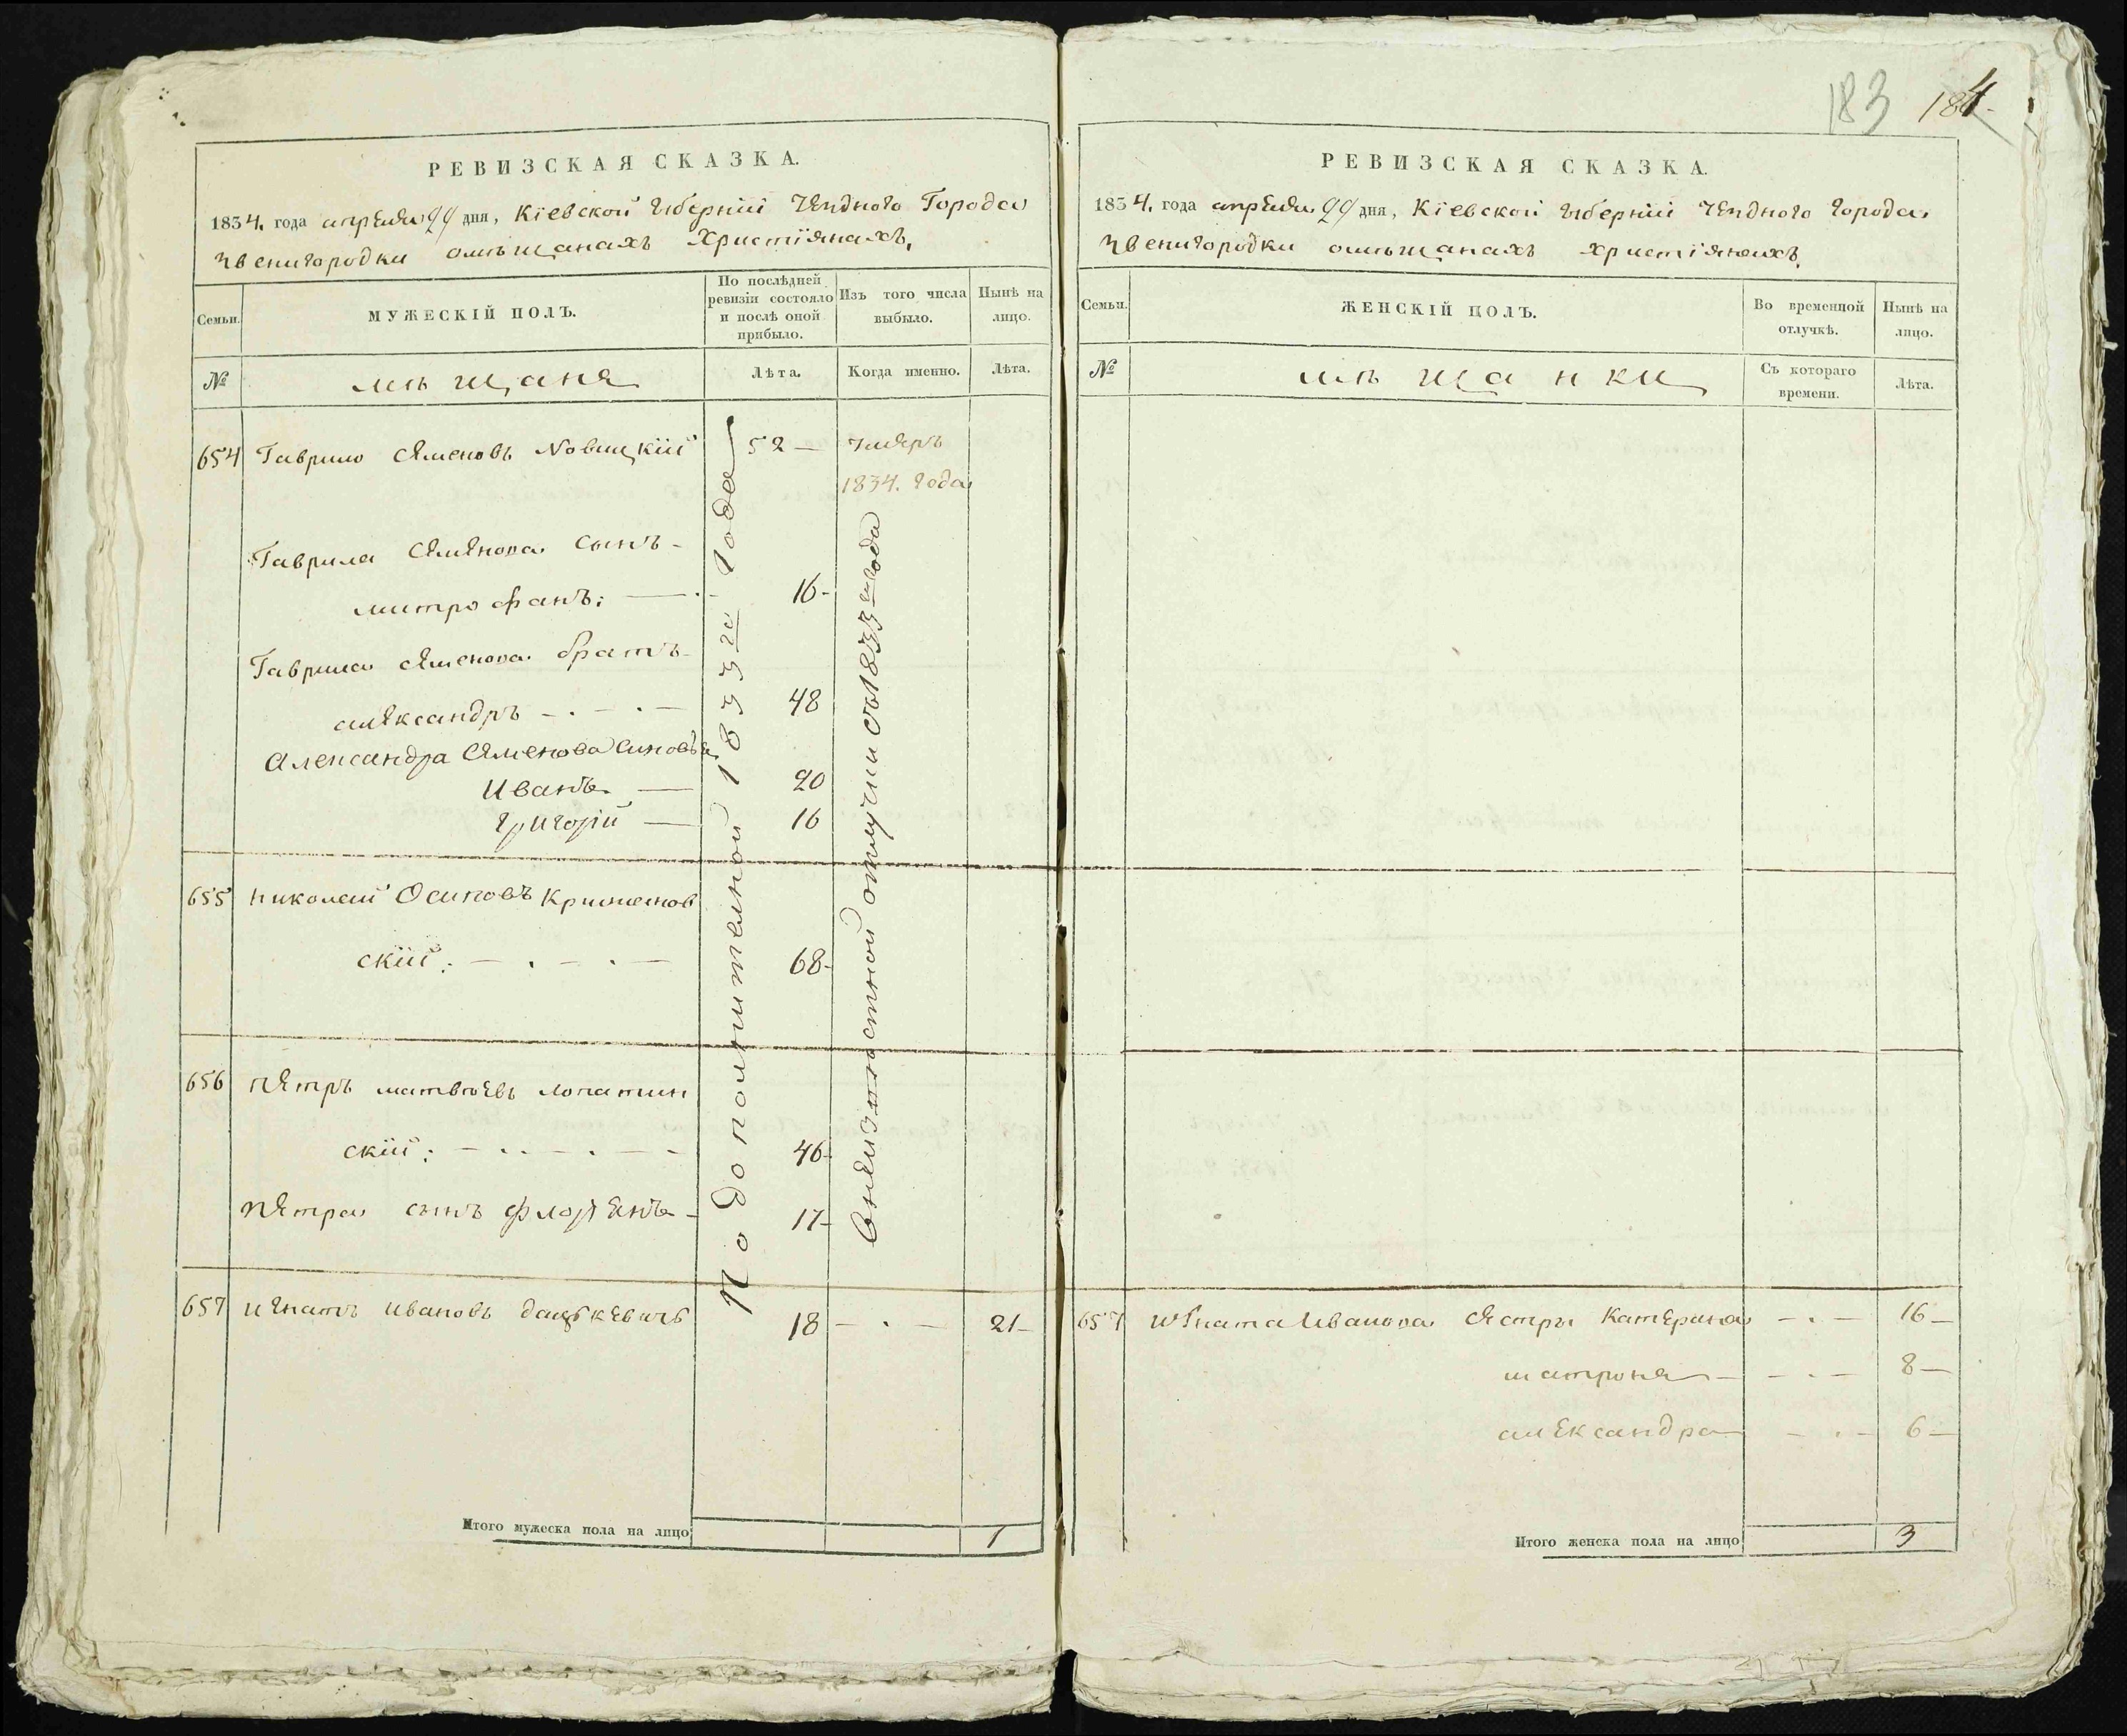 183 184
РЕВИЗСКАЯ СКАЗКА.
1834. года апреля 29 дня, Кіевской Губерніи Уезднаго Города
Звенигородки омѣщанахъ Христіянахъ.
Семьи. МУЖЕСКІЙ ПОЛЪ. По послѣдней ревизіи состояло и послѣ оной прибыло. Изъ того числа выбыло. Нынѣ на лицо.
№ мѣщане Лѣта. Когда именно. Лѣта.
654 Гаврило Семеновъ Новицкій 52 — умеръ
1834. года
Гаврила Семенова сынъ
митрофанъ: — 16 -
Гаврила Семенова братъ
александръ — 48
Александра Семенова Синовья
Иванъ — 20
Григорій — 16
655 николай Осиповъ
скій: — 68 -
656 петръ матвѣевъ лопатин
скій: — 46 -
петра сынъ 17 -
657 игнатъ ивановъ дацькевичь 18 — . — 21 -
По дополнителной 1833 го года
отлучки съ 1833 го года
Итого мужеска пола на лицо 1
РЕВИЗСКАЯ СКАЗКА.
1834. года апреля 29 дня, Кіевской Губерніи Уезднаго города
Звенигородки омѣщанахъ христіянахъ.
Семьи. ЖЕНСКІЙ ПОЛЪ. Во временной отлучкѣ. Нынѣ на лицо.
№ мѣщанки Съ котораго времени. Лѣта.
657 игната Иванова сестры Катерина — . — 16 —
матрона — . — 8 —
александра — . — 6 —
Итого женска пола на лицо 3